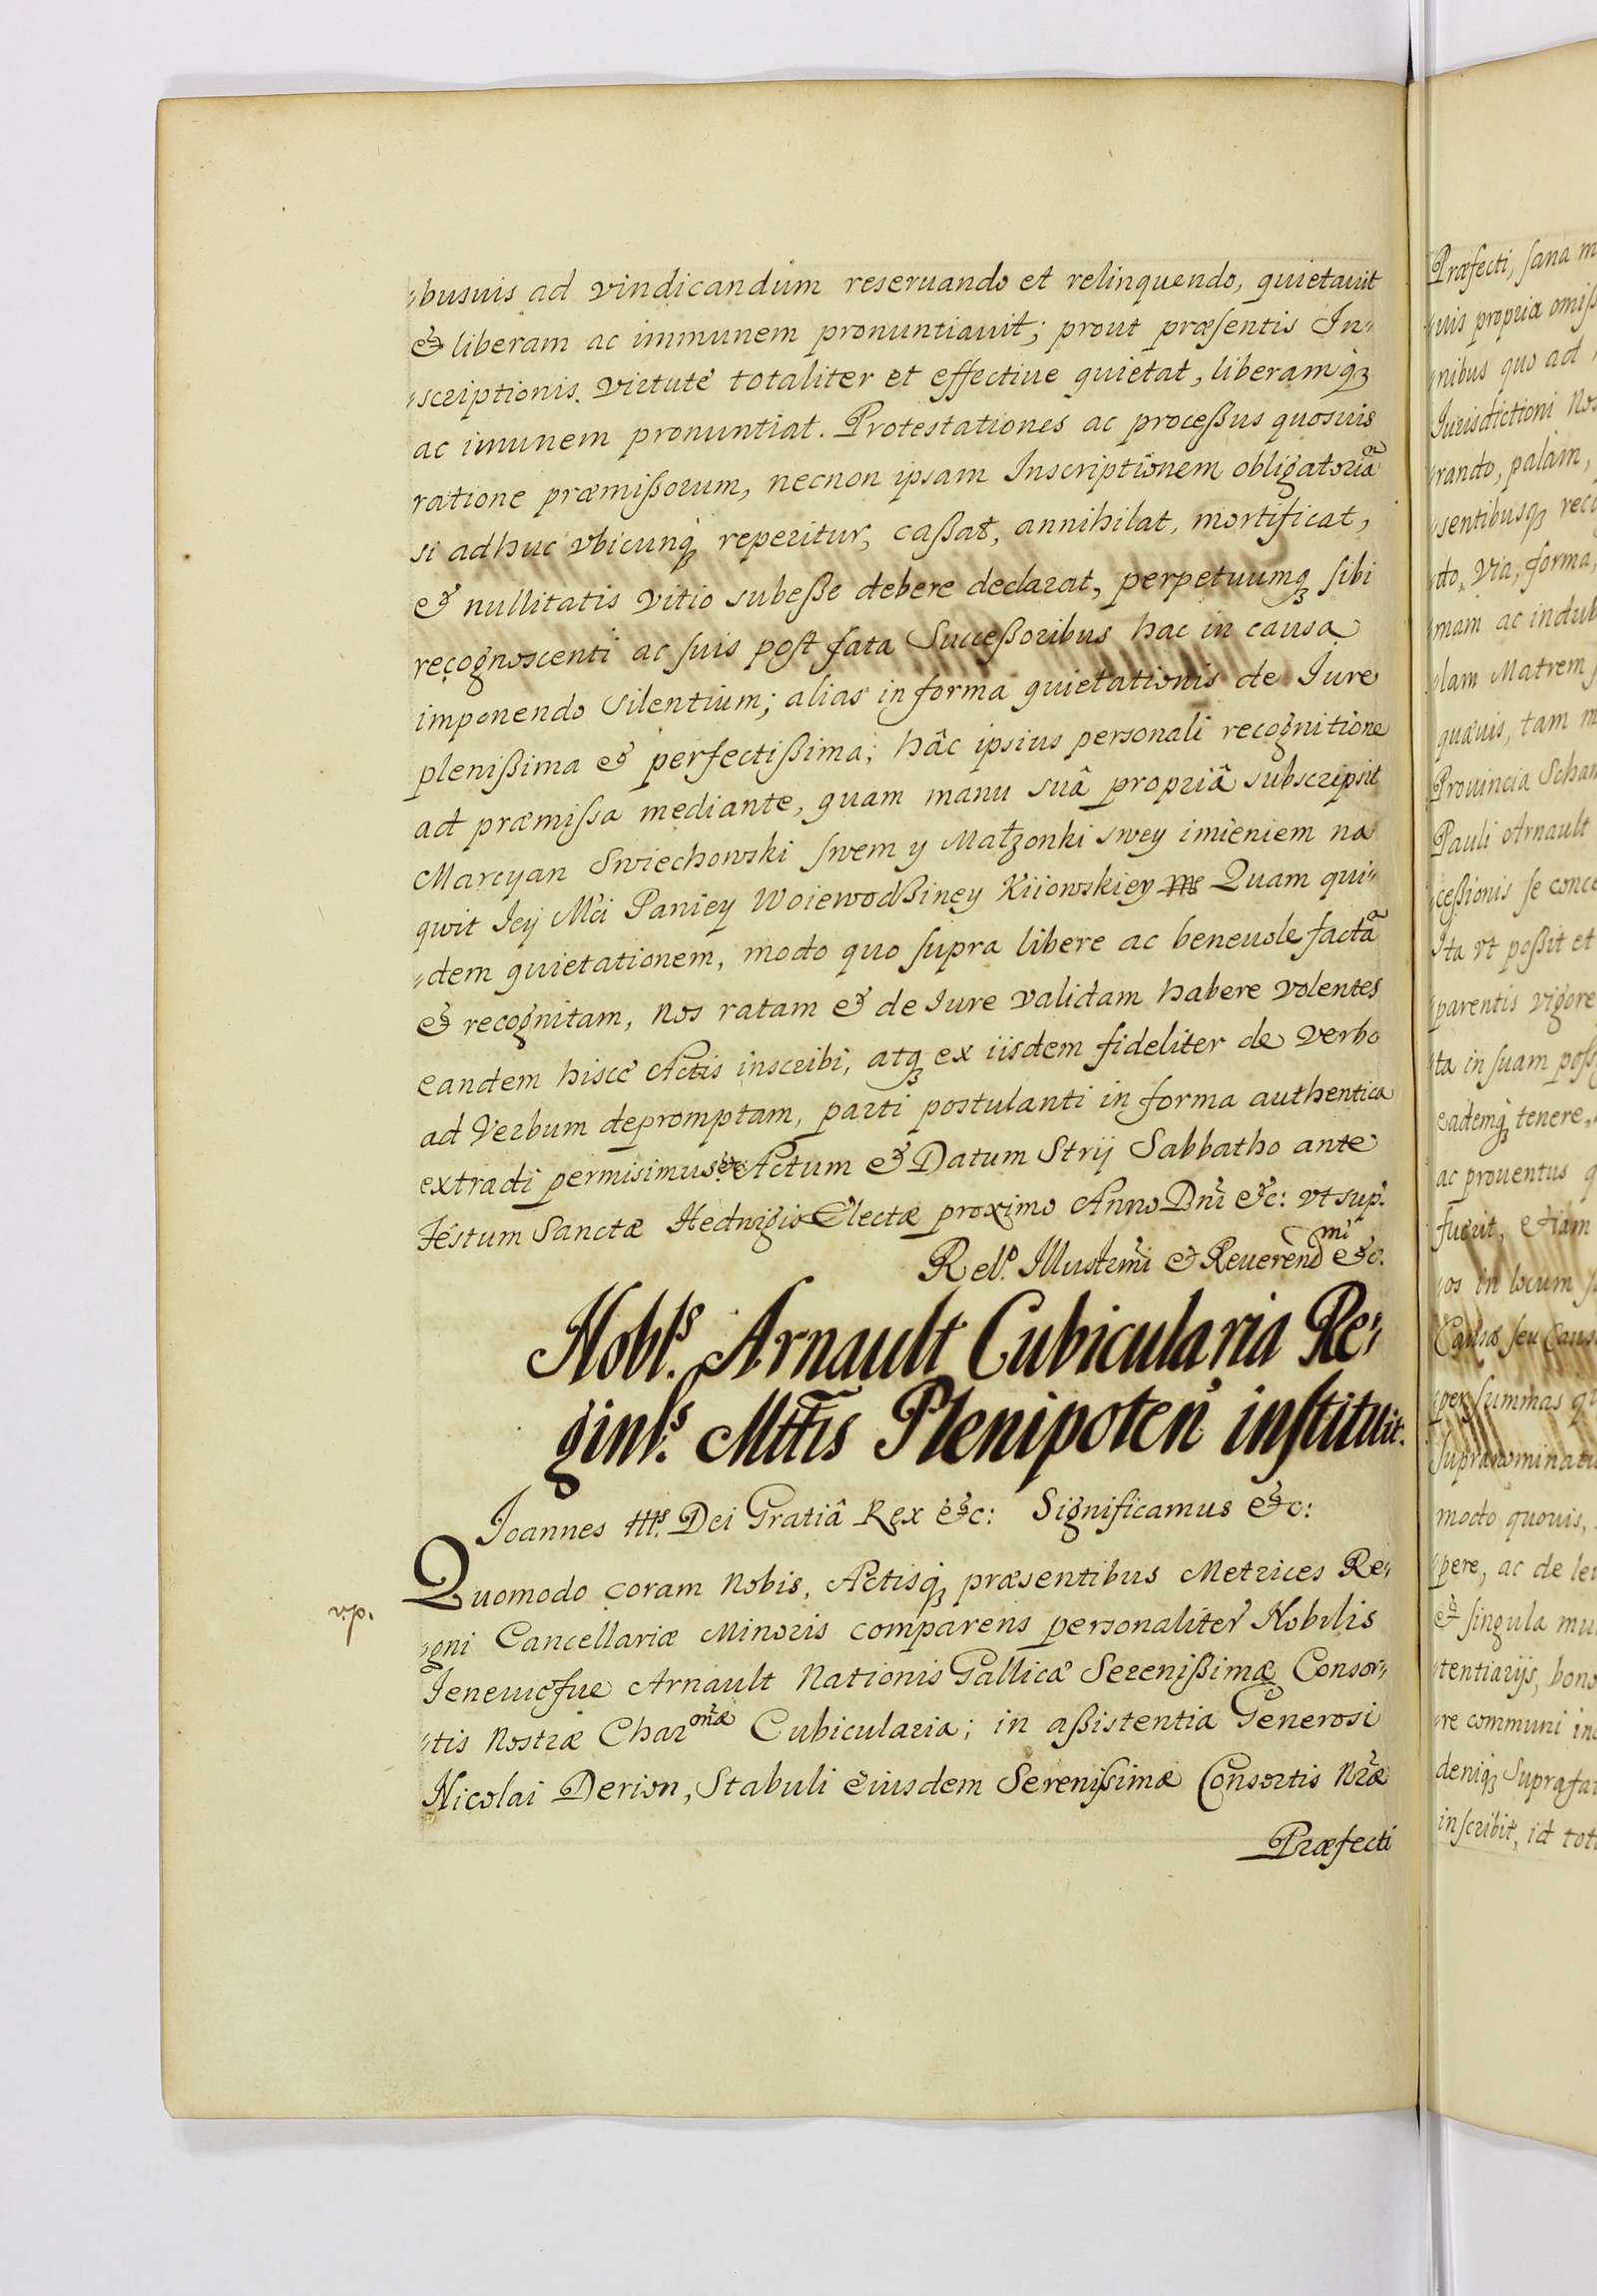 busuis ad vindicandum reseruando et relinquendo, quietauit
& liberam ac immunem pronuntiauit; prout præsentis In-
scriptionis. Virtute totaliter et effectiue quietat, liberamq3
ac imunem pronuntiat. Protestationes ac proceßus quosuis
ratione præmißorum, necnon ipsam Inscriptionem obligatoriã
si adhuc vbicunq3 reperitur, caßat, annihilat, mortificat,
& nullitatis vitio subeße debere declarat, perpetuumq3 sibi
recognoscenti ac suis post fata Succeßoribus hac in causa
imponendo Silentium; alias in forma quietationis de Iure
plenißima & perfectißima; hâc ipsius personali recognitione
ad præmissa mediante, quam manu suâ propriâ subscripsit
Marcyan Swiechowski swem y Małzonki swey imieniem na
qwit Jey Mci Paniey Woiewodßiney Kiiowskiey Quam qui-
dem quietationem, modo quo supra libere ac beneuole factã
& recognitam, Nos ratam & de Iure validam habere volentes
eandem hisce Actis inscribi, atq3 ex iisdem fideliter de verbo
ad Verbum depromptam, parti postulanti in forma authentica
extradi permisimus. Actum & Datum Strij Sabbatho ante
Festum Sanctæ Hedwigis Electæ proximo Anno Dni &c: vt sup.
Rel.° Illustrmi & Reuerendmi &c.
Nobl.s Arnault Cubicularia Re-
ginl.s Mttis Plenipoten instituit.
Joannes III.s Dei Gratiâ Rex &c: Significamus &c:
Quomodo coram Nobis, Actisq3 præsentibus Metrices Re-
v.p.
gni Cancellariæ Minoris comparens personaliter Nobilis
Arnault Nationis Gallicæ Serenißimæ Consor-
tis Nostræ Charomæ Cubicularia; in aßistentia Generosi
Nicolai Derion, Stabuli eiusdem Serenissimæ Consortis Nræ
Præfecti
Præfecti, sana m
uis propria omiss
nibus quo ad
Iurisdictioni Nos
rando, palam,
sentibusq3 reco
do, Via, forma,
mam ac indub
lam Matrem
quæuis, tam m
Prouincia Scham
Pauli Arnault
ceßionis se conce
Ita vt poßit et
parentis vigore
ta in suam poss
eademq3 tenere,
ac prouentus q
fuerit, etiam
os in locum
Causæ seu Caus
per summas qu
supranominat
modo quouis,
pere, ac de le
& singula mu
tentiarijs, bono
re communi in
deniq3 Suprafat
inscribit, id tot